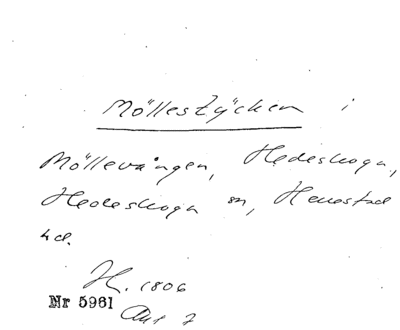 Möllestycken i
Möllevången, Hedeskoga,
Hedeskoga sn, Herrestad
hd.
H. 1806
Nr 5961
Akt 7